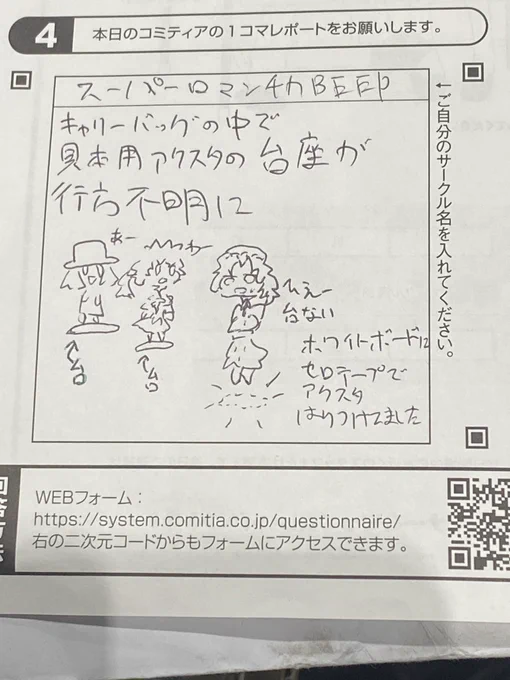 4
本日のコミティアの1コマレポートをお願いします。
スーパーロマンチカBEEP
←ご自分のサークル名を入れてください。
キャリーバッグの中で
見本用アクスタの台座が
行方不明に
あー
ひえー
台ない
ホワイトボードに
セロテープで
アクスタ
はりつけてました
WEBフォーム：
https://system.comitia.co.jp/questionnaire/
右の二次元コードからもフォームにアクセスできます。